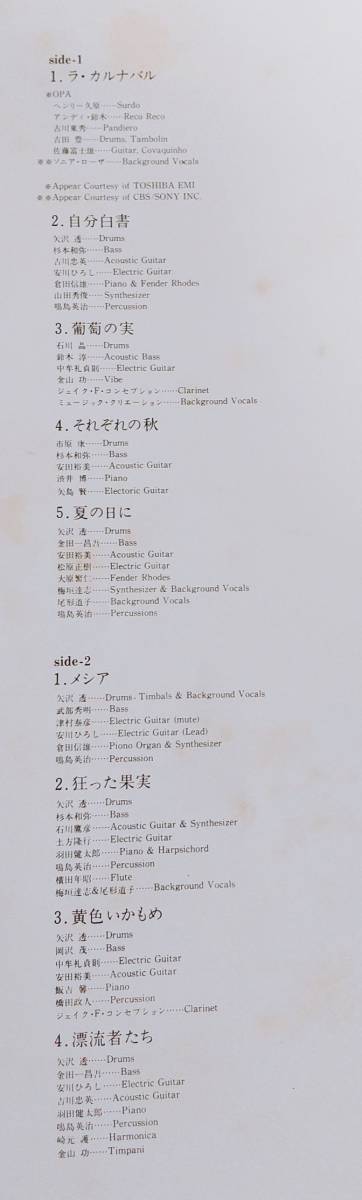 side-1
1.ラ・カルナバル
※OPA
ヘンリー久原……Surdo
アンディ・鈴木……Reco Reco
吉川東秀……Pandiero
吉田 豊……Drums, Tambolin
佐藤富士雄……Guitar, Covaquinho
※※ソニア・ローザ……Background Vocals
※Appear Courtesy of TOSHIBA EMI
※※Appear Courtesy of CBS/SONY INC.
2.自分白書
矢沢 透……Drums
杉本和弥……Bass
吉川忠英……Acoustic Guitar
安川ひろし……Electric Guitar
倉田信雄……Piano & Fender Rhodes
山田秀俊……Synthesizer
鳴島英治……Percussion
3.葡萄の実
石川 晶……Drums
鈴木 淳……Acoustic Bass
中牟礼貞則……Electric Guitar
金山 功……Vibe
ジェイク・F・コンセプション……Clarinet
ミュージック・クリエーション……Background Vocals
4.それぞれの秋
市原 康……Drums
杉本和弥……Bass
安田裕美……Acoustic Guitar
渋井 博……Piano
矢島 賢……Electoric Guitar
5.夏の日に
矢沢 透……Drums
金田一昌吾……Bass
安田裕美……Acoustic Guitar
松原正樹……Electric Guitar
大原繁仁……Fender Rhodes
梅垣達志……Synthesizer & Background Vocals
尾形道子……Background Vocals
鳴島英治……Percussions
side-2
1.メシア
矢沢 透……Drums, Timbals & Background Vocals
武部秀明……Bass
津村泰彦……Electric Guitar (mute)
安川ひろし……Electric Guitar (Lead)
倉田信雄……Piono Organ & Synthesizer
鳴島英治……Percussion
2.狂った果実
矢沢 透……Drums
杉本和弥……Bass
石川鷹彦……Acoustic Guitar & Synthesizer
土方隆行……Electric Guitar
羽田健太郎……Piano & Harpsichord
鳴島英治……Percussion
横田年昭……Flute
梅垣達志&尾形道子……Background Vocals
3.黄色いかもめ
矢沢 透……Drums
岡沢 茂……Bass
中牟礼貞則……Electric Guitar
安田裕美……Acoustic Guitar
飯吉 馨……Piano
橋田政人……Percussion
ジェイク・F・コンセプション……Clarinet
4.漂流者たち
矢沢 透……Drums
金田一昌吾……Bass
安川ひろし……Electric Guitar
吉川忠英……Acoustic Guitar
羽田健太郎……Piano
鳴島英治……Percussion
崎元 譲……Harmonica
金山 功……Timpani